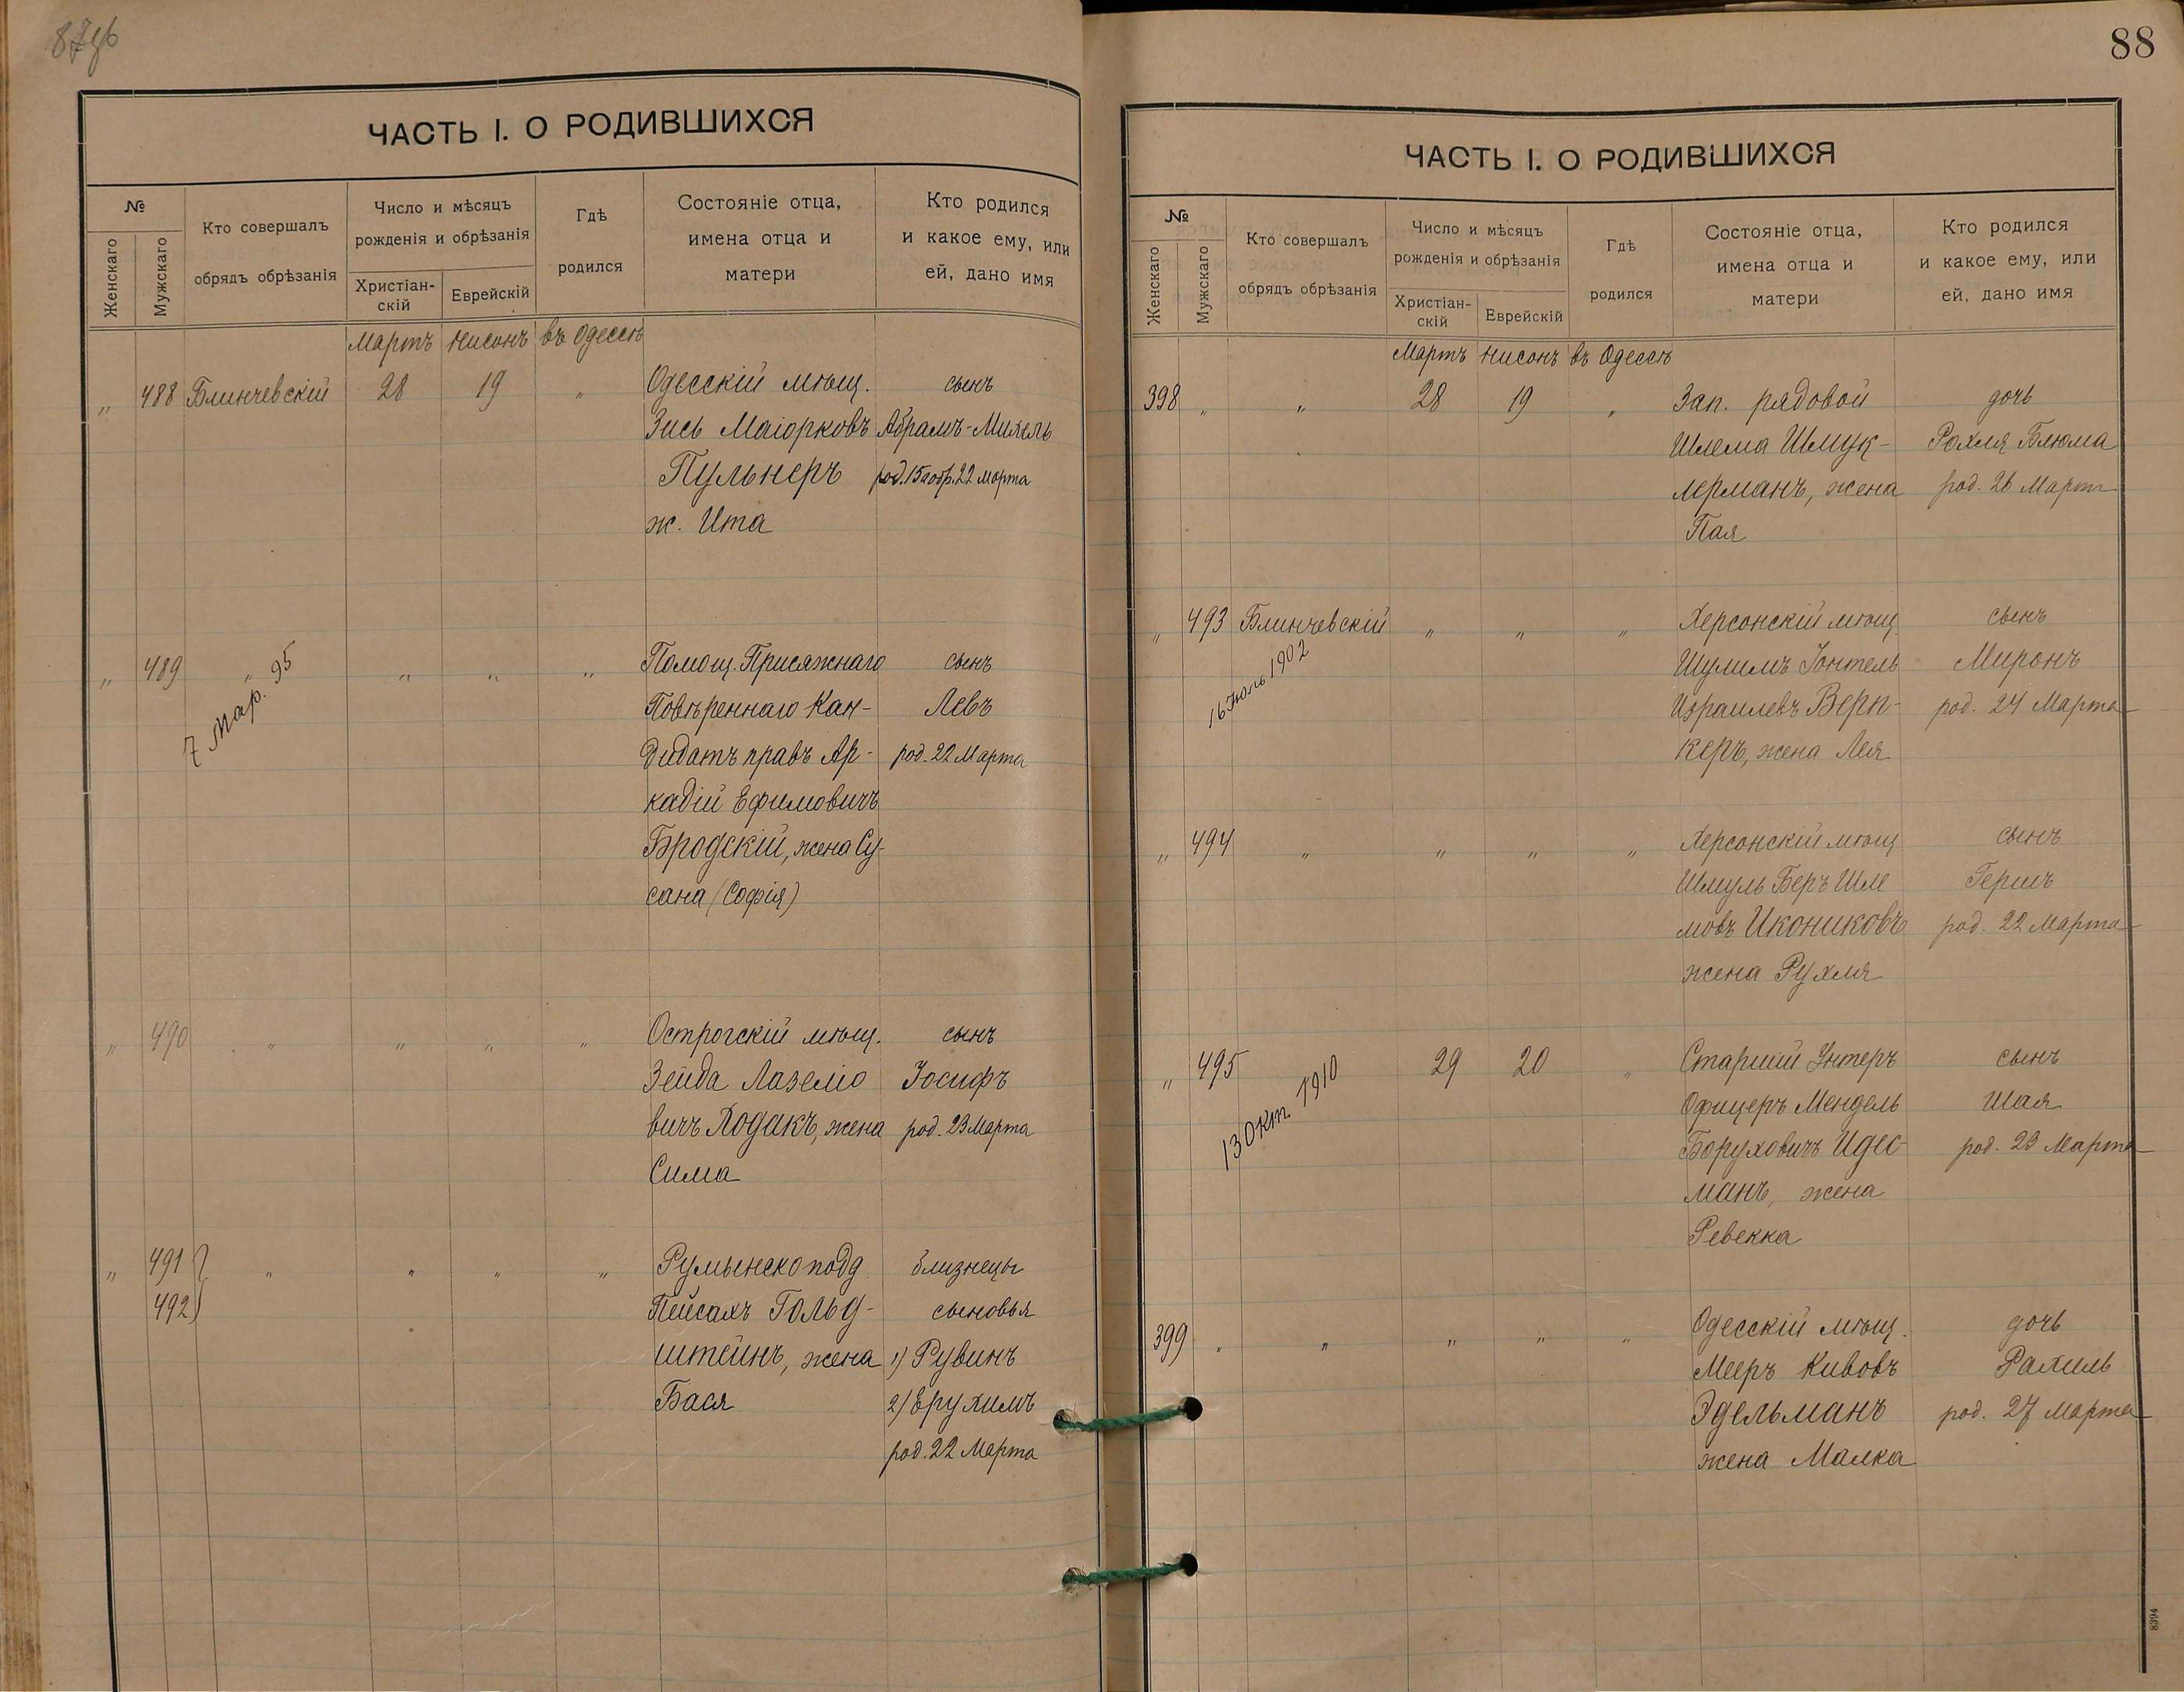 87 об
ЧАСТЬ I. О РОДИВШИХСЯ
№
Женскаго
Мужскаго
Кто совершалъ
обрядъ обрѣзанія
Число и мѣсяцъ
рожденія и обрѣзанія
Христіан-
скій
Еврейскій
Гдѣ
родился
Состояніе отца,
имена отца и
матери
Кто родился
и какое ему, или
ей, дано имя
Мартъ Нисонъ въ Одессѣ
„ 488 Блинчевскій 28 19 „ Одесскій мѣщ. сынъ
Зись Маіорковъ Абрамъ-Михель
Пульнеръ род. 15 а обр. 22 марта
ж. Ита
„ 489 „ „ „ „ Помощ. Присяжнаго сынъ
7 Мар. 95
Повѣреннаго Кан- Левъ
дидатъ правъ Ар- род. 22 Марта
кадій Ефимовичъ
Бродскій, жена Су-
сана (Софія)
„ 490 „ „ „ „ Острогскій мѣщ. сынъ
Зейда Лазеліо Іосифъ
вичъ Ходакъ, жена род. 23 Марта
Сима
„ 491 „ „ „ „ Румынскоподд близнецы
492 Пейсахъ Гольд- сыновья
штейнъ, жена 1) Рувинъ
Бася 2) Ерухимъ
род. 22 Марта
88
ЧАСТЬ I. О РОДИВШИХСЯ
№
Женскаго
Мужскаго
Кто совершалъ
обрядъ обрѣзанія
Число и мѣсяцъ
рожденія и обрѣзанія
Христіан-
скій
Еврейскій
Гдѣ
родился
Состояніе отца,
имена отца и
матери
Кто родился
и какое ему, или
ей, дано имя
Мартъ Нисонъ въ Одессѣ
398 „ „ 28 19 „ Зап. рядовой дочь
Шлема Шмук- Рохля Блюма
лерманъ, жена род. 26 Март
Пая
„ 493 Блинчевскій „ „ „ Херсонскій мѣщ сынъ
16 Іюль 1902
Шулимъ Іонтель Миронъ
Израилевъ Верн- род. 24 Марта
керъ, жена Лея
„ 494 „ „ „ „ Херсонскій мѣщ сынъ
Шмуль Беръ Шле Гершъ
мовъ Икониковъ род. 22 Марта
жена Рухля
„ 495 29 20 „ Старшій Унтеръ сынъ
13 Окт. 1910
Офицеръ Мендель Шая
Боруховичъ Идес- род. 23 Марта
манъ, жена
Ревекка
399 „ „ „ „ „ Одесскій мѣщ. дочь
Мееръ Кивовъ Рахиль
Эдельманъ род. 27 Марта
жена Малка
8394